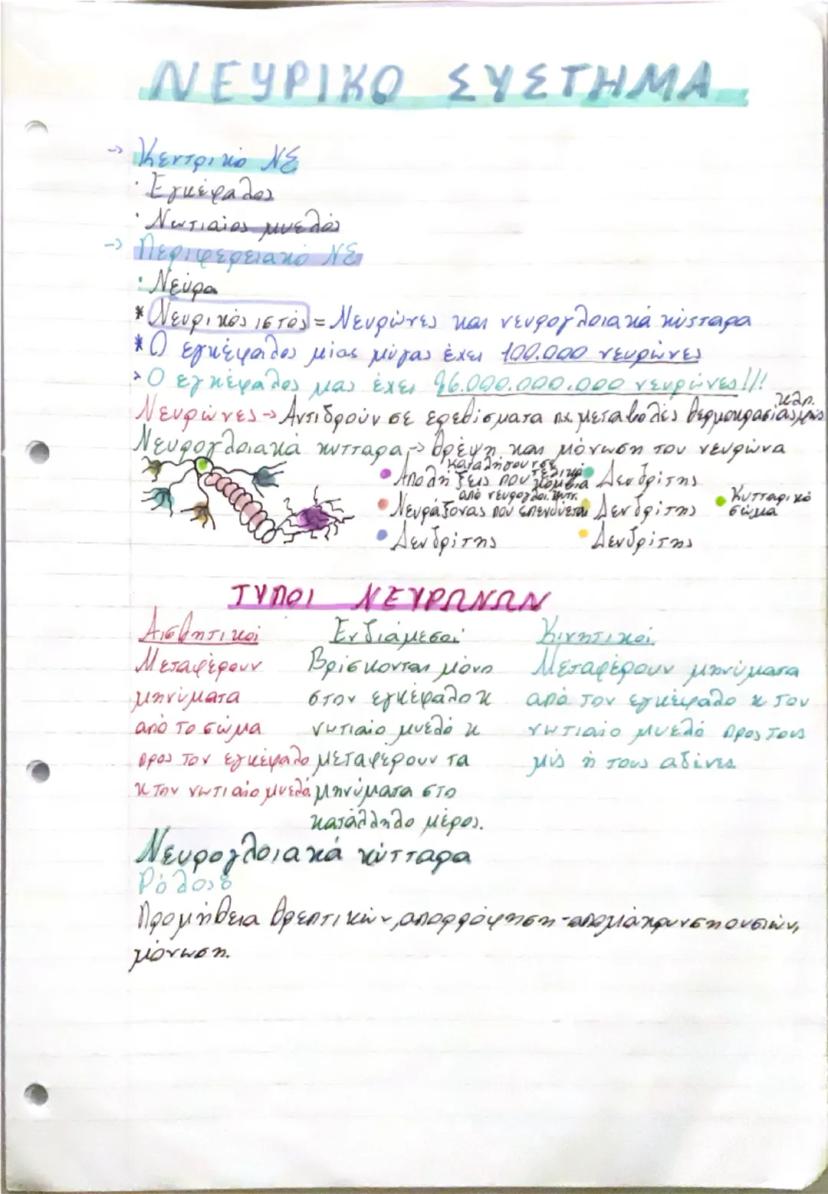 ΝΕΥΡΙΚΟ ΣΥΣΤΗΜΑ
→ Κεντρικό ΝΣ
· Εγκέφαλος
· Νωτιαίος μυελός
→ Περιφερειακό ΝΣ
· Νεύρα
* Νευρικός ιστός = Νευρώνες και νευρογλοιακά κύτταρα
* Ο εγκέφαλος μίας μύγας έχει 100.000 νευρώνες
* Ο εγκέφαλος μας έχει 86.000.000.000 νευρώνες!!!
Νευρώνες → Αντιδρούν σε ερεθίσματα πχ μεταβολές θερμοκρασίας κλπ.
Νευρογλοιακά κύτταρα → θρέψη και μόνωση του νευρώνα
• Απολήξεις που καταλήγουν σε τελικά κομβία
• Νευράξονας που επενδύεται από νευρογλοι. κυτ.
• Δενδρίτης
• Δενδρίτης
• Δενδρίτης
• Δενδρίτης
• Κυτταρικό
σώμα
ΤΥΠΟΙ ΝΕΥΡΩΝΩΝ
Αισθητικοί
Μεταφέρουν
μηνύματα
από το σώμα
προς τον εγκέφαλο
κ τον νωτιαίο μυελό
Ενδιάμεσοι
Βρίσκονται μόνο
στον εγκέφαλο κ
νωτιαίο μυελό κ
μεταφέρουν τα
μηνύματα στο
κατάλληλο μέρος.
Κινητικοί
Μεταφέρουν μηνύματα
από τον εγκέφαλο κ τον
νωτιαίο μυελό προς τους
μύς ή τους αδένες
Νευρογλοιακά κύτταρα
Ρόλος:
Προμήθεια θρεπτικών, απορρόφηση-απομάκρυνση ουσιών,
μόνωση.